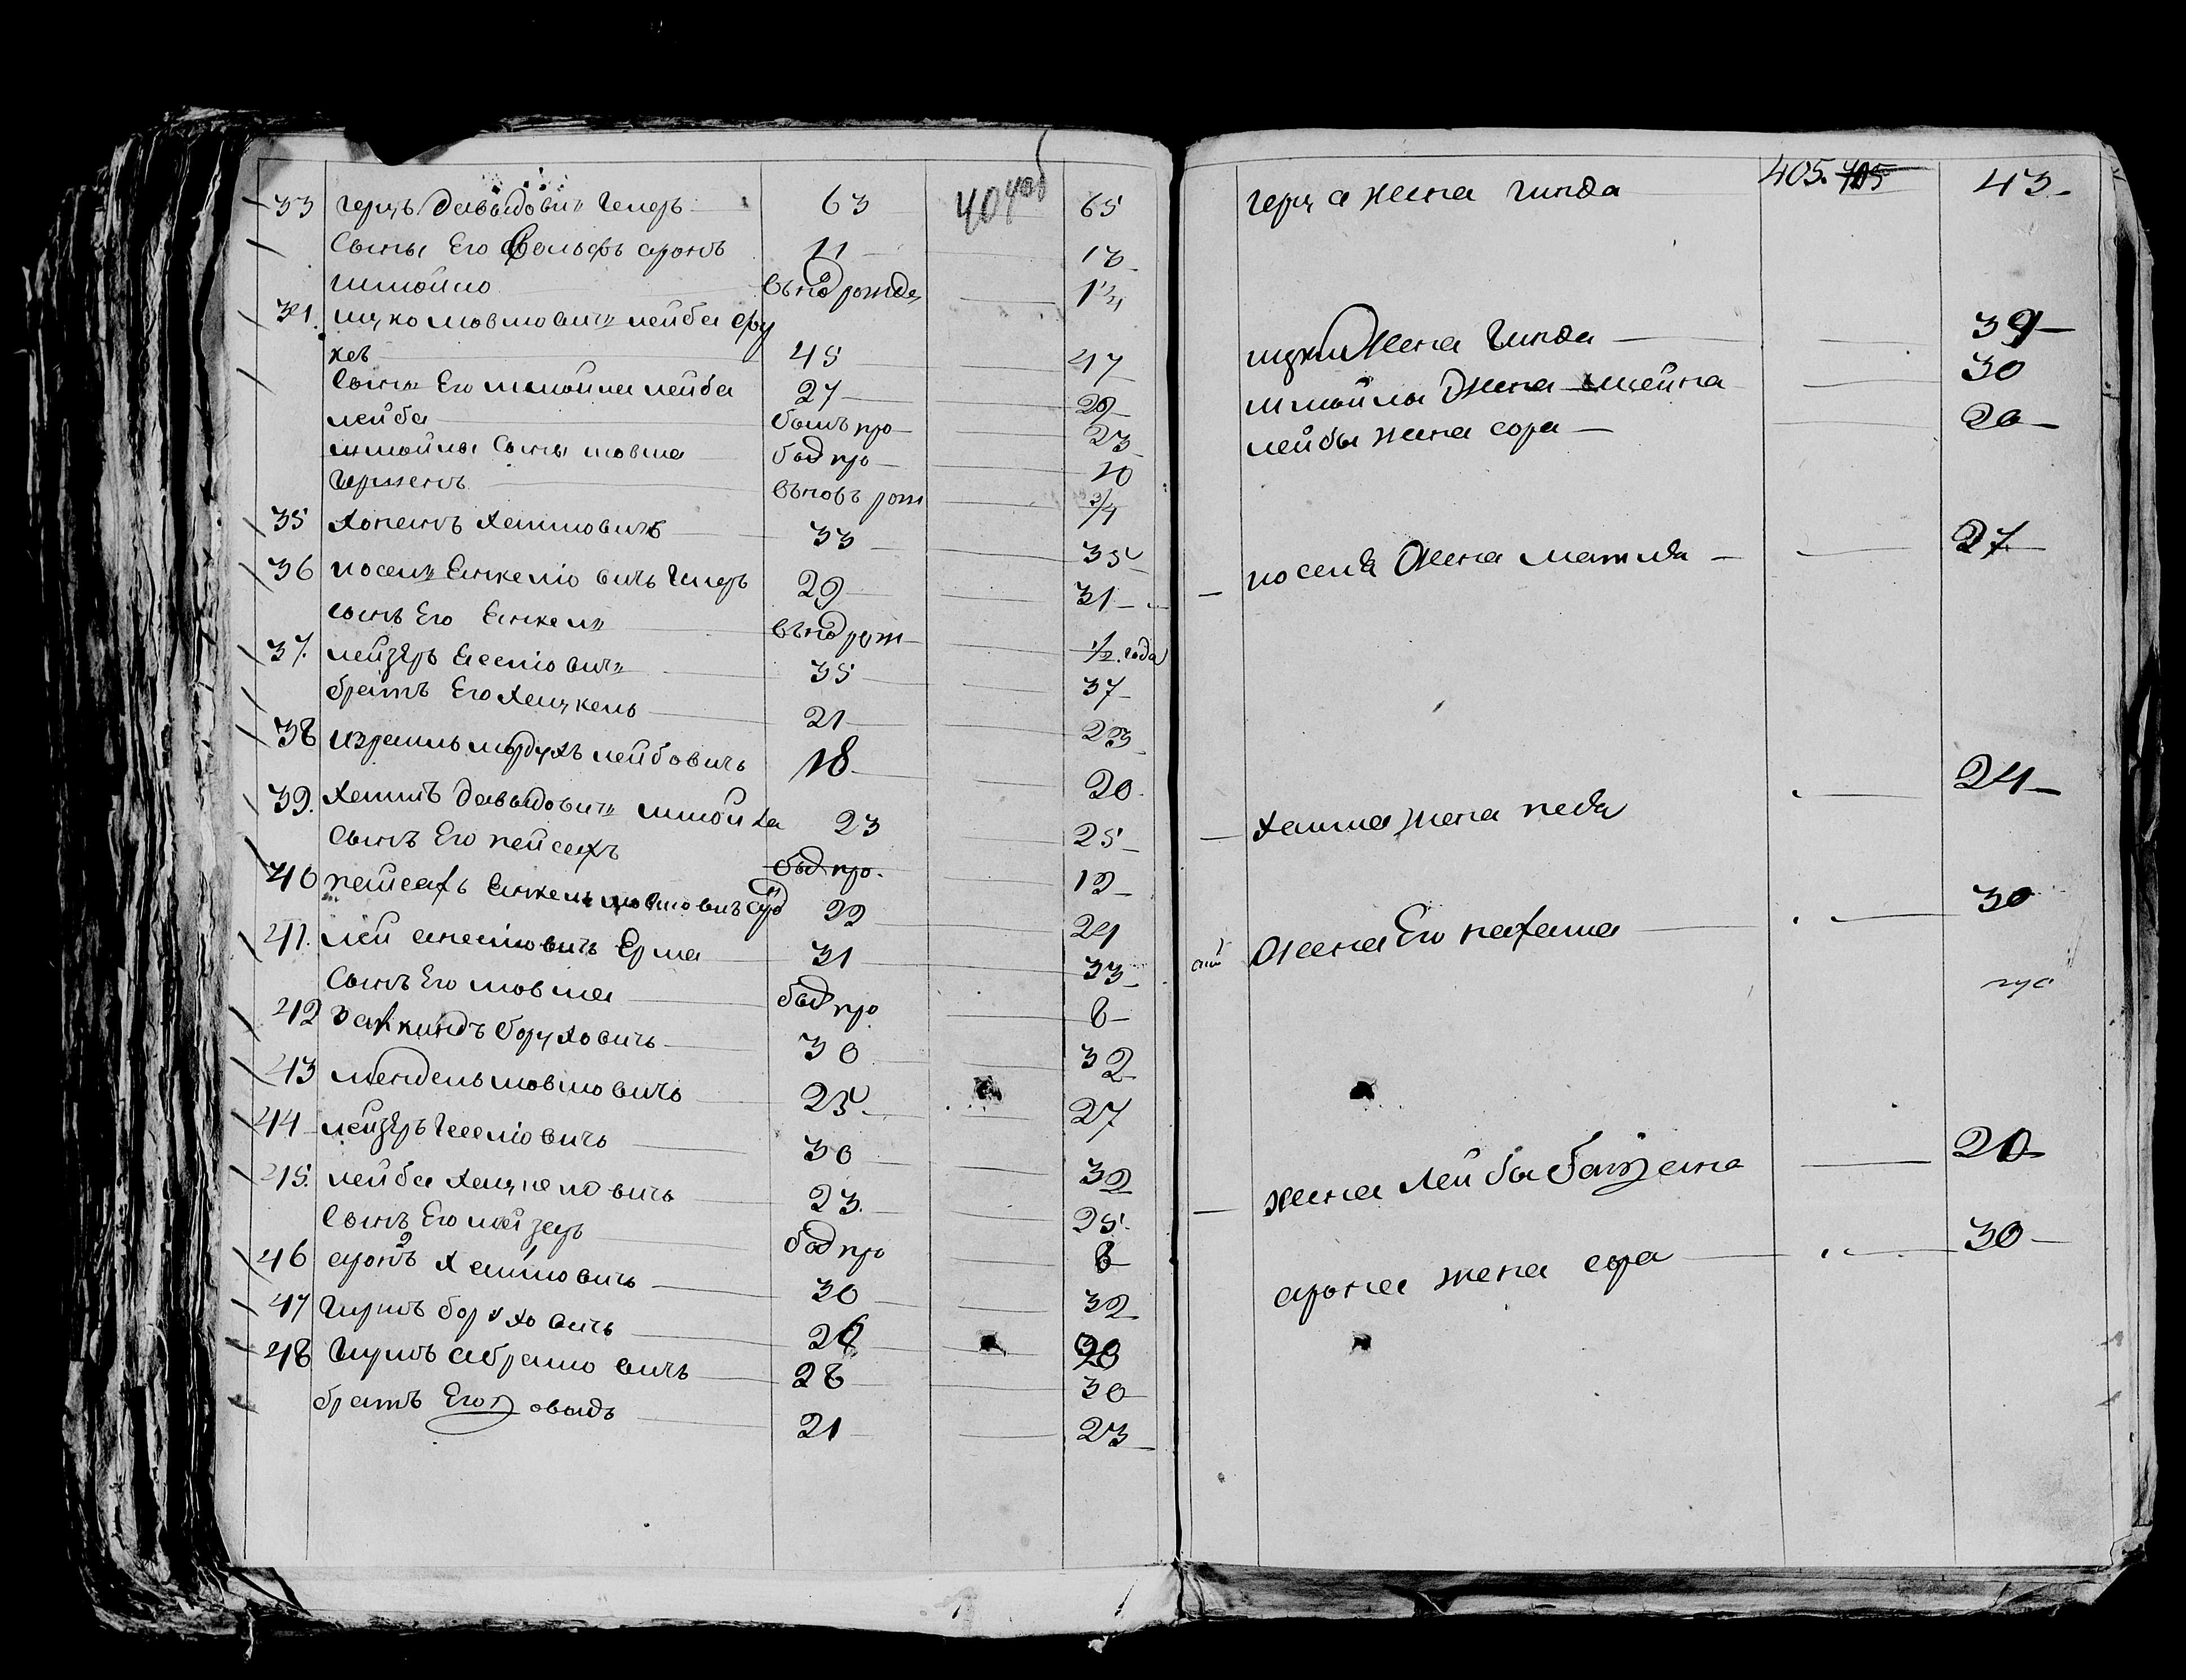 404 405
33 Герцъ Давыдовичъ Геперъ 63 65
Сыны Его Вольфъ аронъ 11 13
шмойло вънов рожде 1 3/4
34. ицко мовшовичъ лейба
45 47
Сынъ Его шмойла лейба 27 29
лейба былъ про 23
шмойлы Сыны мовша был про 10
Гершенъ вновь рож 3/4
35 Хоненъ Хаимовичъ 33 35
36 иосель Янкелювичъ Геперъ 29 31
сынъ Его Янкель вънов рож 1/2 года
37. лейзеръ Еселювичъ 35 37
братъ Его Хацкель 21 23
38 израиль мордухъ лейбовичъ 18 20
39. Хаимъ Давыдовичъ 23 25
Сынъ Его пейсахъ был про. 12
40 пейсахъ Янкель мовшовичъ 22 24
41. лей Ерма 31 33
Сынъ Его мовша был про 8
42 Залкиндъ боруховичъ 30 32
43 мендель мовшовичъ 25 27
44 лейзеръ Іоселіовичъ 30 32
45. лейба Хацкелювичъ 23. 25.
Сынъ Его лейзеръ был про 8
46 аронъ 2 Хаимовичъ 30 32
47 Гиршъ боруховичъ 26 28
48 Гиршъ абрамовичъ 28 30
братъ Его Довыдъ 21 23
405. 405
герца жена гинда 43
ицки Жена Гинда 39
шмойлы Жена шейна 30
лейбы жена сора 20
иоселя Жена матля 27
Хаима жена песя 24
Жена Его нахама 30
жена лейбы башена 20
арона жена сора 30